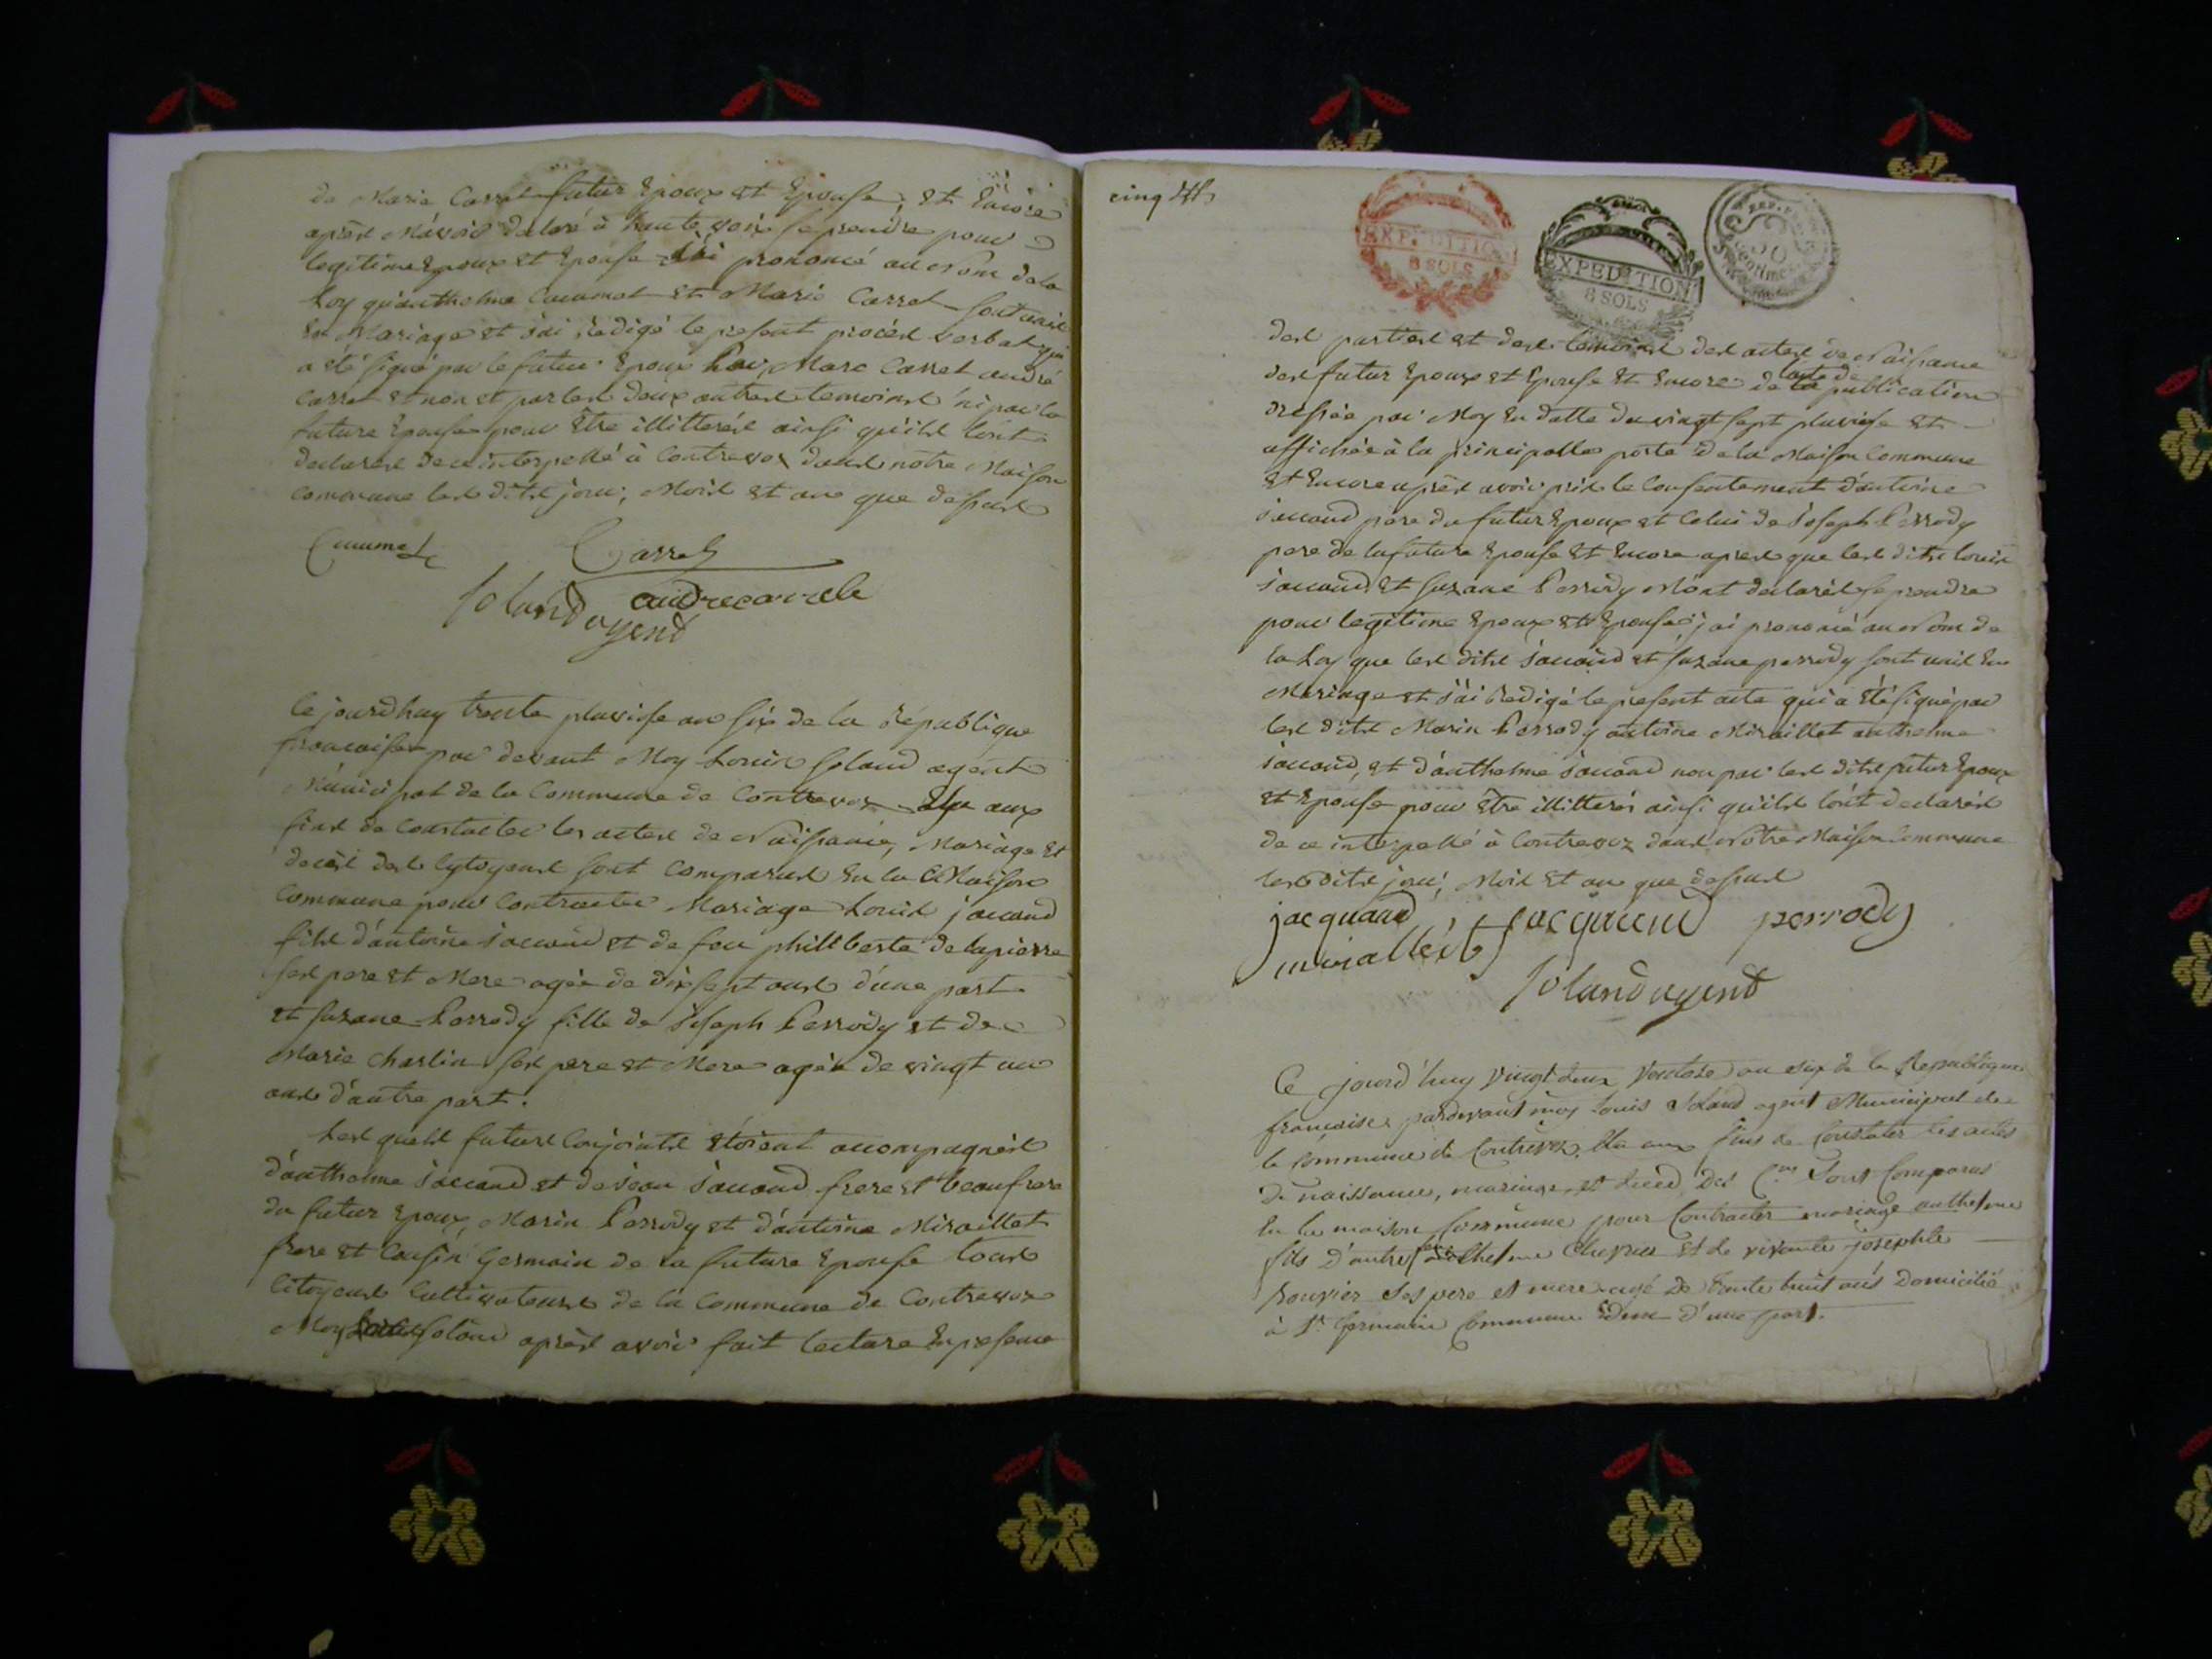 de Marie Carret futur Epoux et Epouse, et Encore
après M'avoir declaré à haute voix se prendre pour
legitime Epoux et Epouse j'ai prononcé au Nom de la
Loy qu'anthelme Cucumat et Marie Carret sont unis
En Mariage et j'ai redigé le present procès verbal qui
a été signé par le futur Epoux par Marc Carret andré
Carret et non et par les deux autres temoins ni par la
future Epouse pour être illitterés ainsi qu'ils l'ont
declarés de ce interpellé à Contrevoz dans notre Maison
commune les dits jour, Mois et an que dessus
Carrel
andre carrele
Soland agent
Ce jourdhuy trente pluviose an six de la République
francaise par devant Moy Louis Soland agent
Municipal de la Commune de Contrevoz Elu aux
fins de Constater les actes de Naissance, Mariage et
decès des Cytoyens sont Comparus En la Maison
Commune pour Contracter Mariage Louis jacand
fils d'antoine jacand et de feu phillberte de lapierre
ses pere et Mere agée de dix sept ans d'une part
et suzane Perrody fille de joseph Perrody et de
Marie Charlin ses pere et Mere agée de vingt un
ans d'autre part.
Les quels futurs Conjoints étoient accompagnés
d'anthelme jaccand et de jean jacand frere et beaufrere
du futur Epoux, Marin Perrody et d'antoine Miraillet
frere et Cousin Germain de la future Epouse tous
Citoyens Cultivateurs de la Commune de Contrevoz
Moy Soland après avoir fait lecture En presence
cinq
EXPEDITION
8 SOLS
EXPEDITION
8 SOLS
50
Centimes
des parties et des temoins des actes de Naissance
des futur Epoux et Epouse et Encore de l'acte de publication
dressée par Moy En datte du vingt sept pluviose et
affichée à la principalle porte de la Maison Commune
et Encore après avoir pris le Consentement d'antoine
jacand pere du futur Epoux et Celui de joseph Perrody
pere de la future Epouse et Encore apres que les dits Louis
jacand et suzane Perrody M'ont declarés se prendre
pour legitime Epoux et Epouse j'ai prononcé au Nom de
la Loy que les dits jacand et suzane perrody sont unis En
Mariage et j'ai redigé le present acte qui a été signé par
les dits Marin Perrody antoine Miraillet anthelme
jacand, et d'anthelme jacand non par les dits futur Epoux
et Epouse pour être illitterés ainsi qu'ils l'ont declarés
de ce interpellé à Contrevoz dans Notre Maison Commune
les dits jour, Mois et an que dessus
jacquand, jacquand perrody
miralleit
Soland agent
Ce jourd'huy vingt deux Ventose an six de la Republique
francaise pardevant moy Louis Soland agent Municipal de
la commune de Contrevoz Elu aux fins de Constater les actes
de naissance, mariage et deces des Sont Comparus
En la maison Commune pour Contracter mariage anthelme
fils d'autre et de vivante josephte
ses pere et mere agé de trente huit ans domicilié
à St germain Commune d'une part.